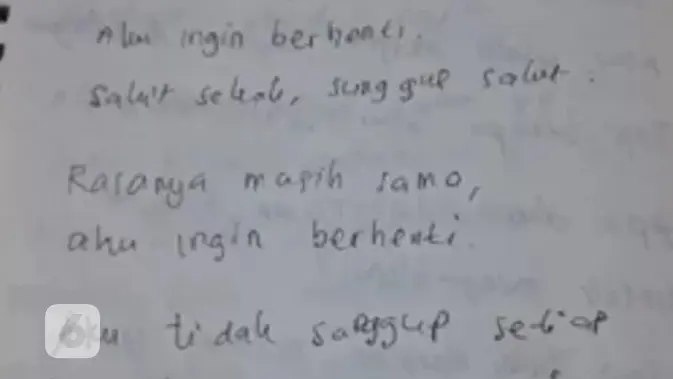 Aku ingin berhenti.
Sakit sekali, sungguh sakit.
Rasanya masih sama,
aku ingin berhenti.
Aku tidak sanggup setiap